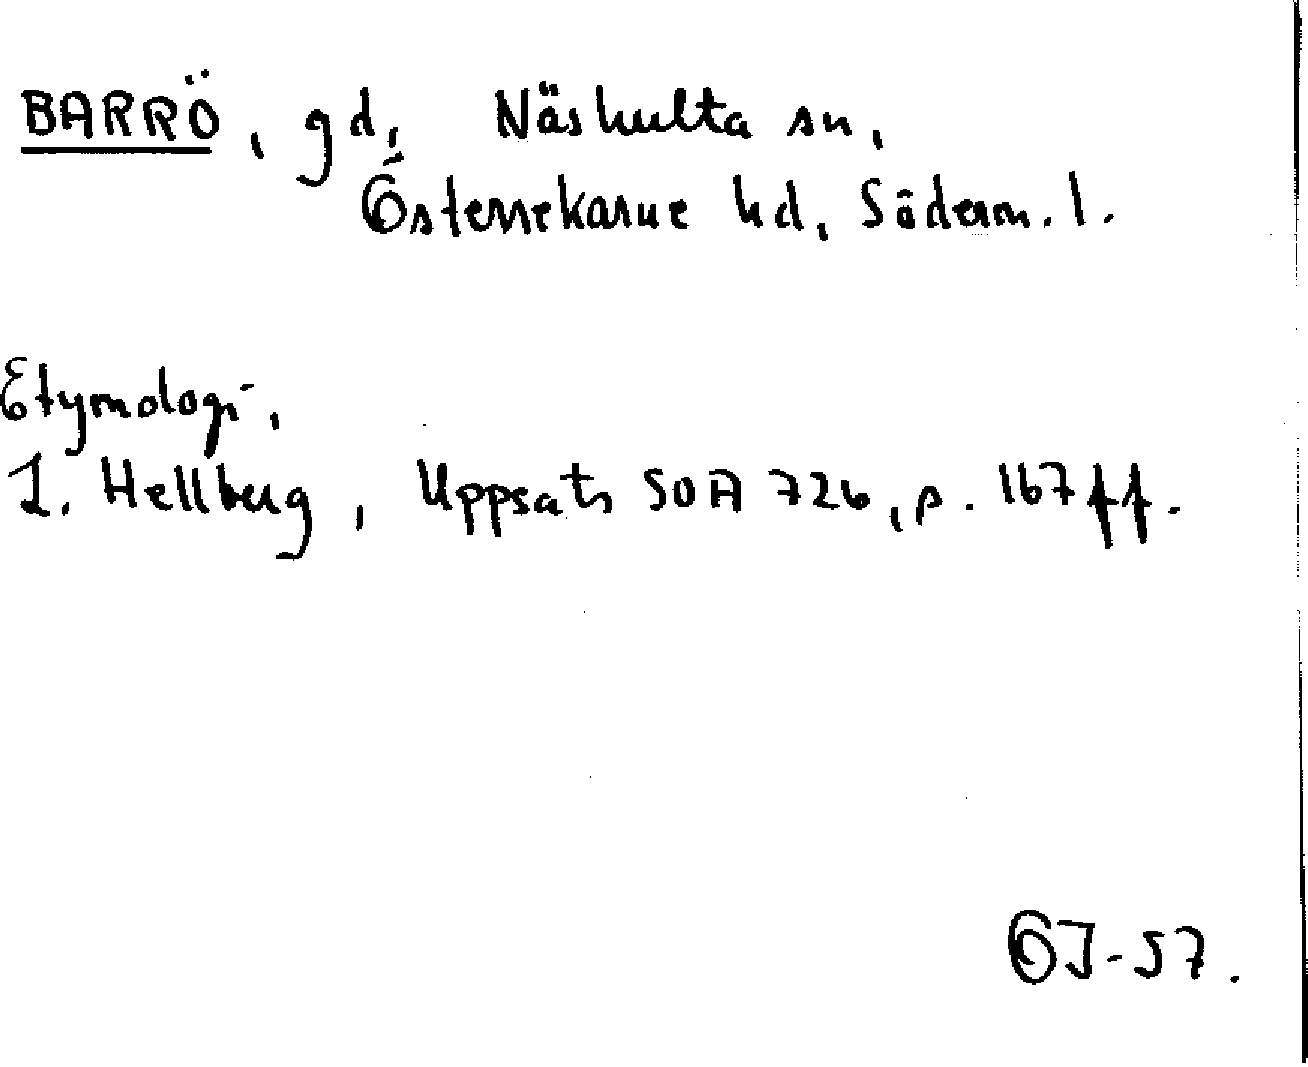 BARRÖ, gd, Näshulta sn,
Österrekarne hd, Söderm. l.
Etymologi,
L. Hellberg, Uppsats SOA 726, s. 167 ff.
OJ-57.